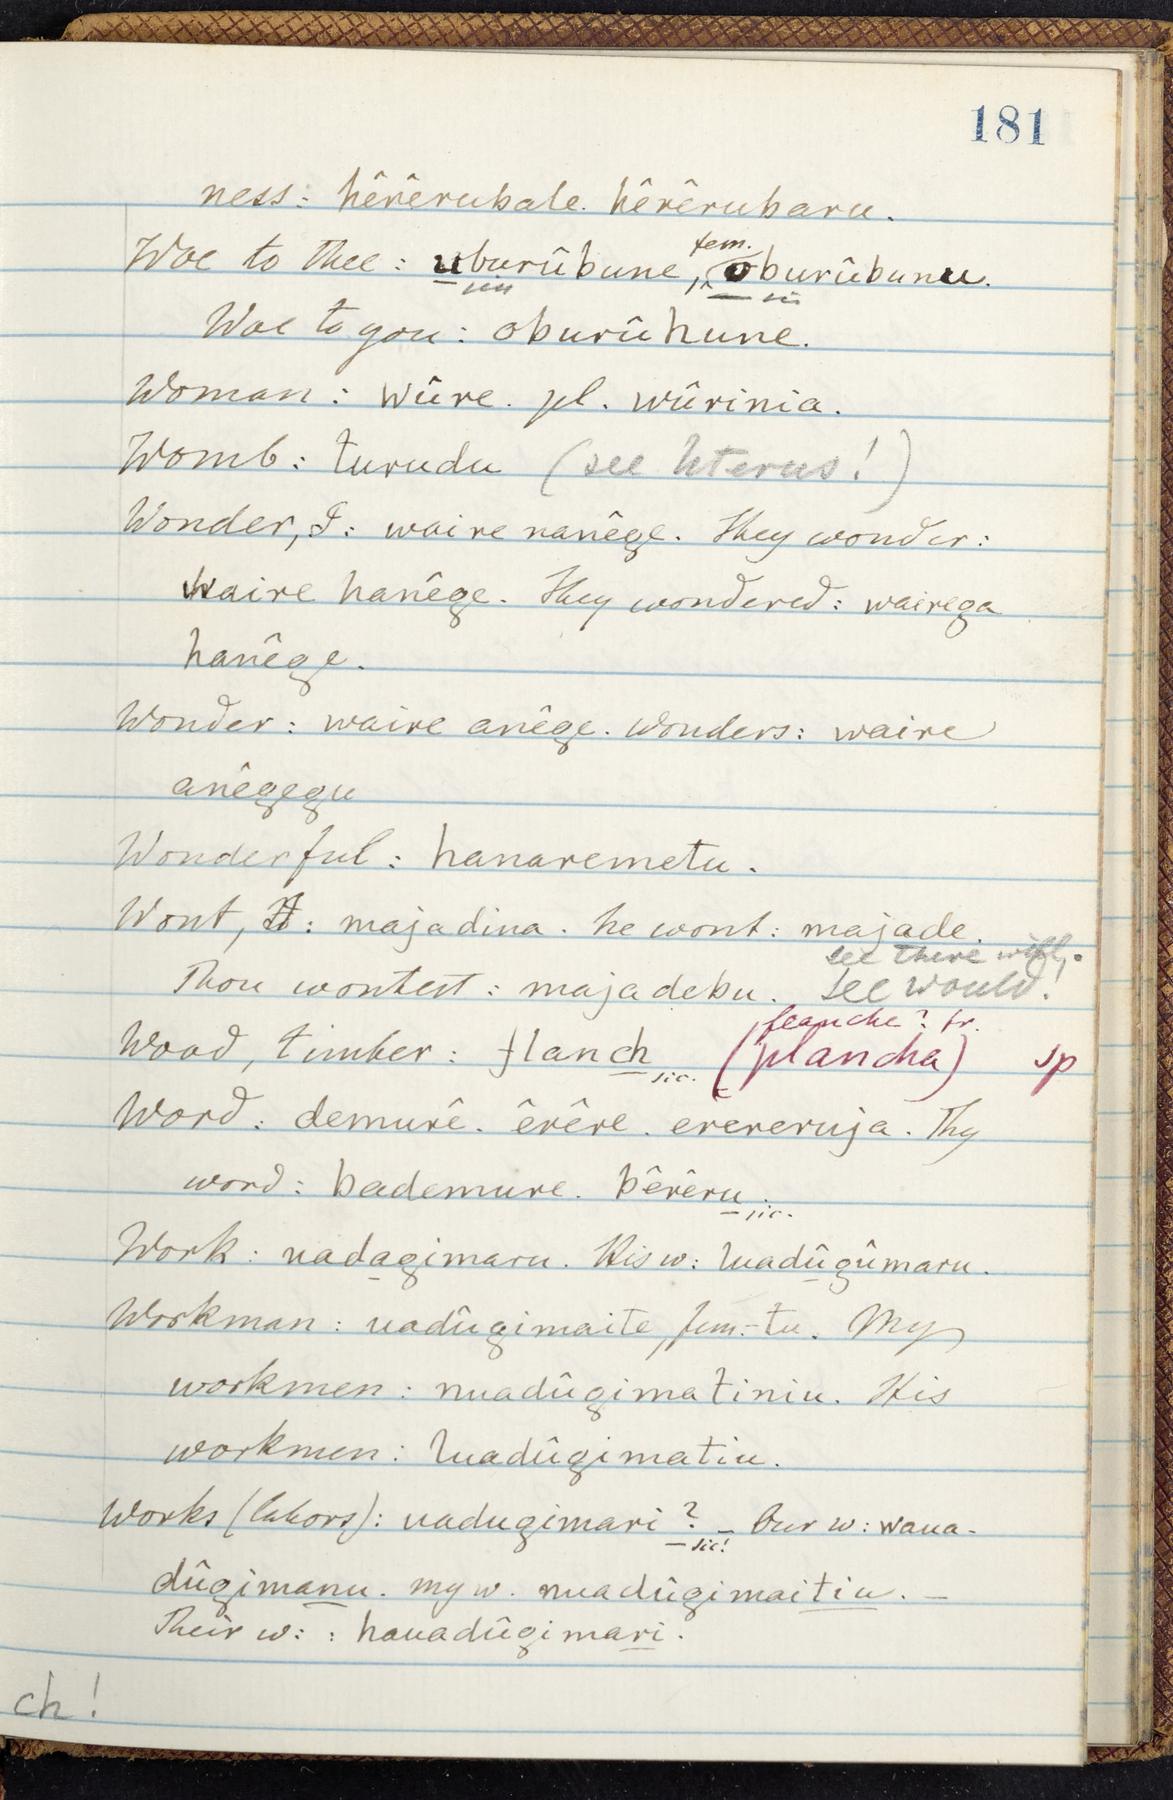 181
ness: hêrêrubale. hêrêrubaru.
Woe to thee: uburûbune, fem. oburûbunu.
sic sic
Woe to you: oburûhune.
Woman: wûre. pl. wûrinia.
Womb: turudu (see Uterus!)
Wonder, I: waire nanêge. They wonder:
waire hanêge. They wondered: wairega
hanêge.
Wonder: waire anêge. Wonders: waire
anêgegu
Wonderful: hanaremetu.
Wont, I: majadina. he wont: majade.
see there will,.
Thou wontest: majadebu. see would!
flanche? fr.
Wood, timber: flanch sic. (plancha) sp
Word: demurê. êrêre. erereruja. Thy
word: bademure. bêrêru. sic.
Work: uadagimaru. His w: luadûgûmaru.
Workman: uadûgimaite, fem. -tu. My
workmen: nuadûgimatiniu. His
workmen: luadûgimatiu.
Works (labors): uadugimari? sic! – Our w: waua-
dûgimanu. my w. nuadûgimaitiu. –
Their w: : hauadûgimari.
ch!